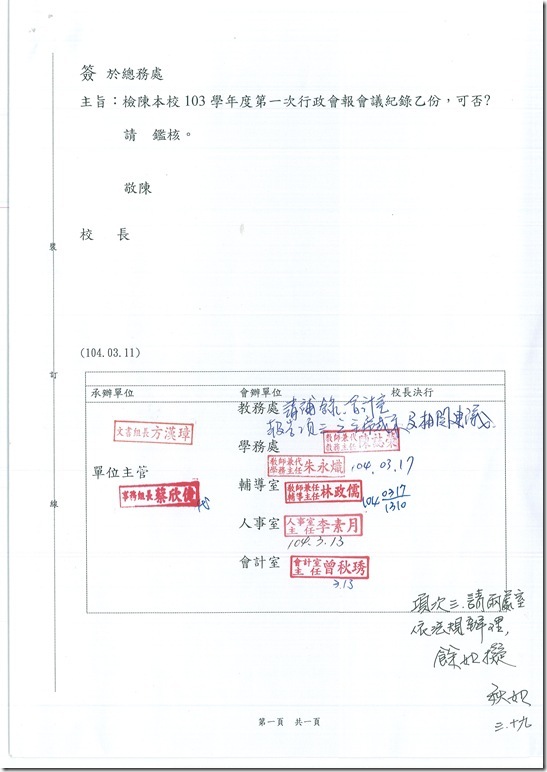 簽 於總務處
主旨：檢陳本校103學年度第一次行政會報會議紀錄乙份，可否?
請 鑑核。
敬陳
校 長
裝
訂
線
(104.03.11)
承辦單位 會辦單位 校長決行
教務處 請補錄 會計室
報告項 及相關
文書組長方漢璋
教師兼代
教務主任
學務處
教師兼代
學務主任 朱永熾 104.03.17
單位主管
事務組長蔡欣健 代
輔導室 教師兼任
輔導主任 林政儒 104 0317
1310
人事室 人事室
主任 李素月
104.3.13
會計室 會計室
主任 曾秋琇
3.13
項次三.請兩處室
依法規辦理,
餘如擬
三.十九
第一頁 共一頁